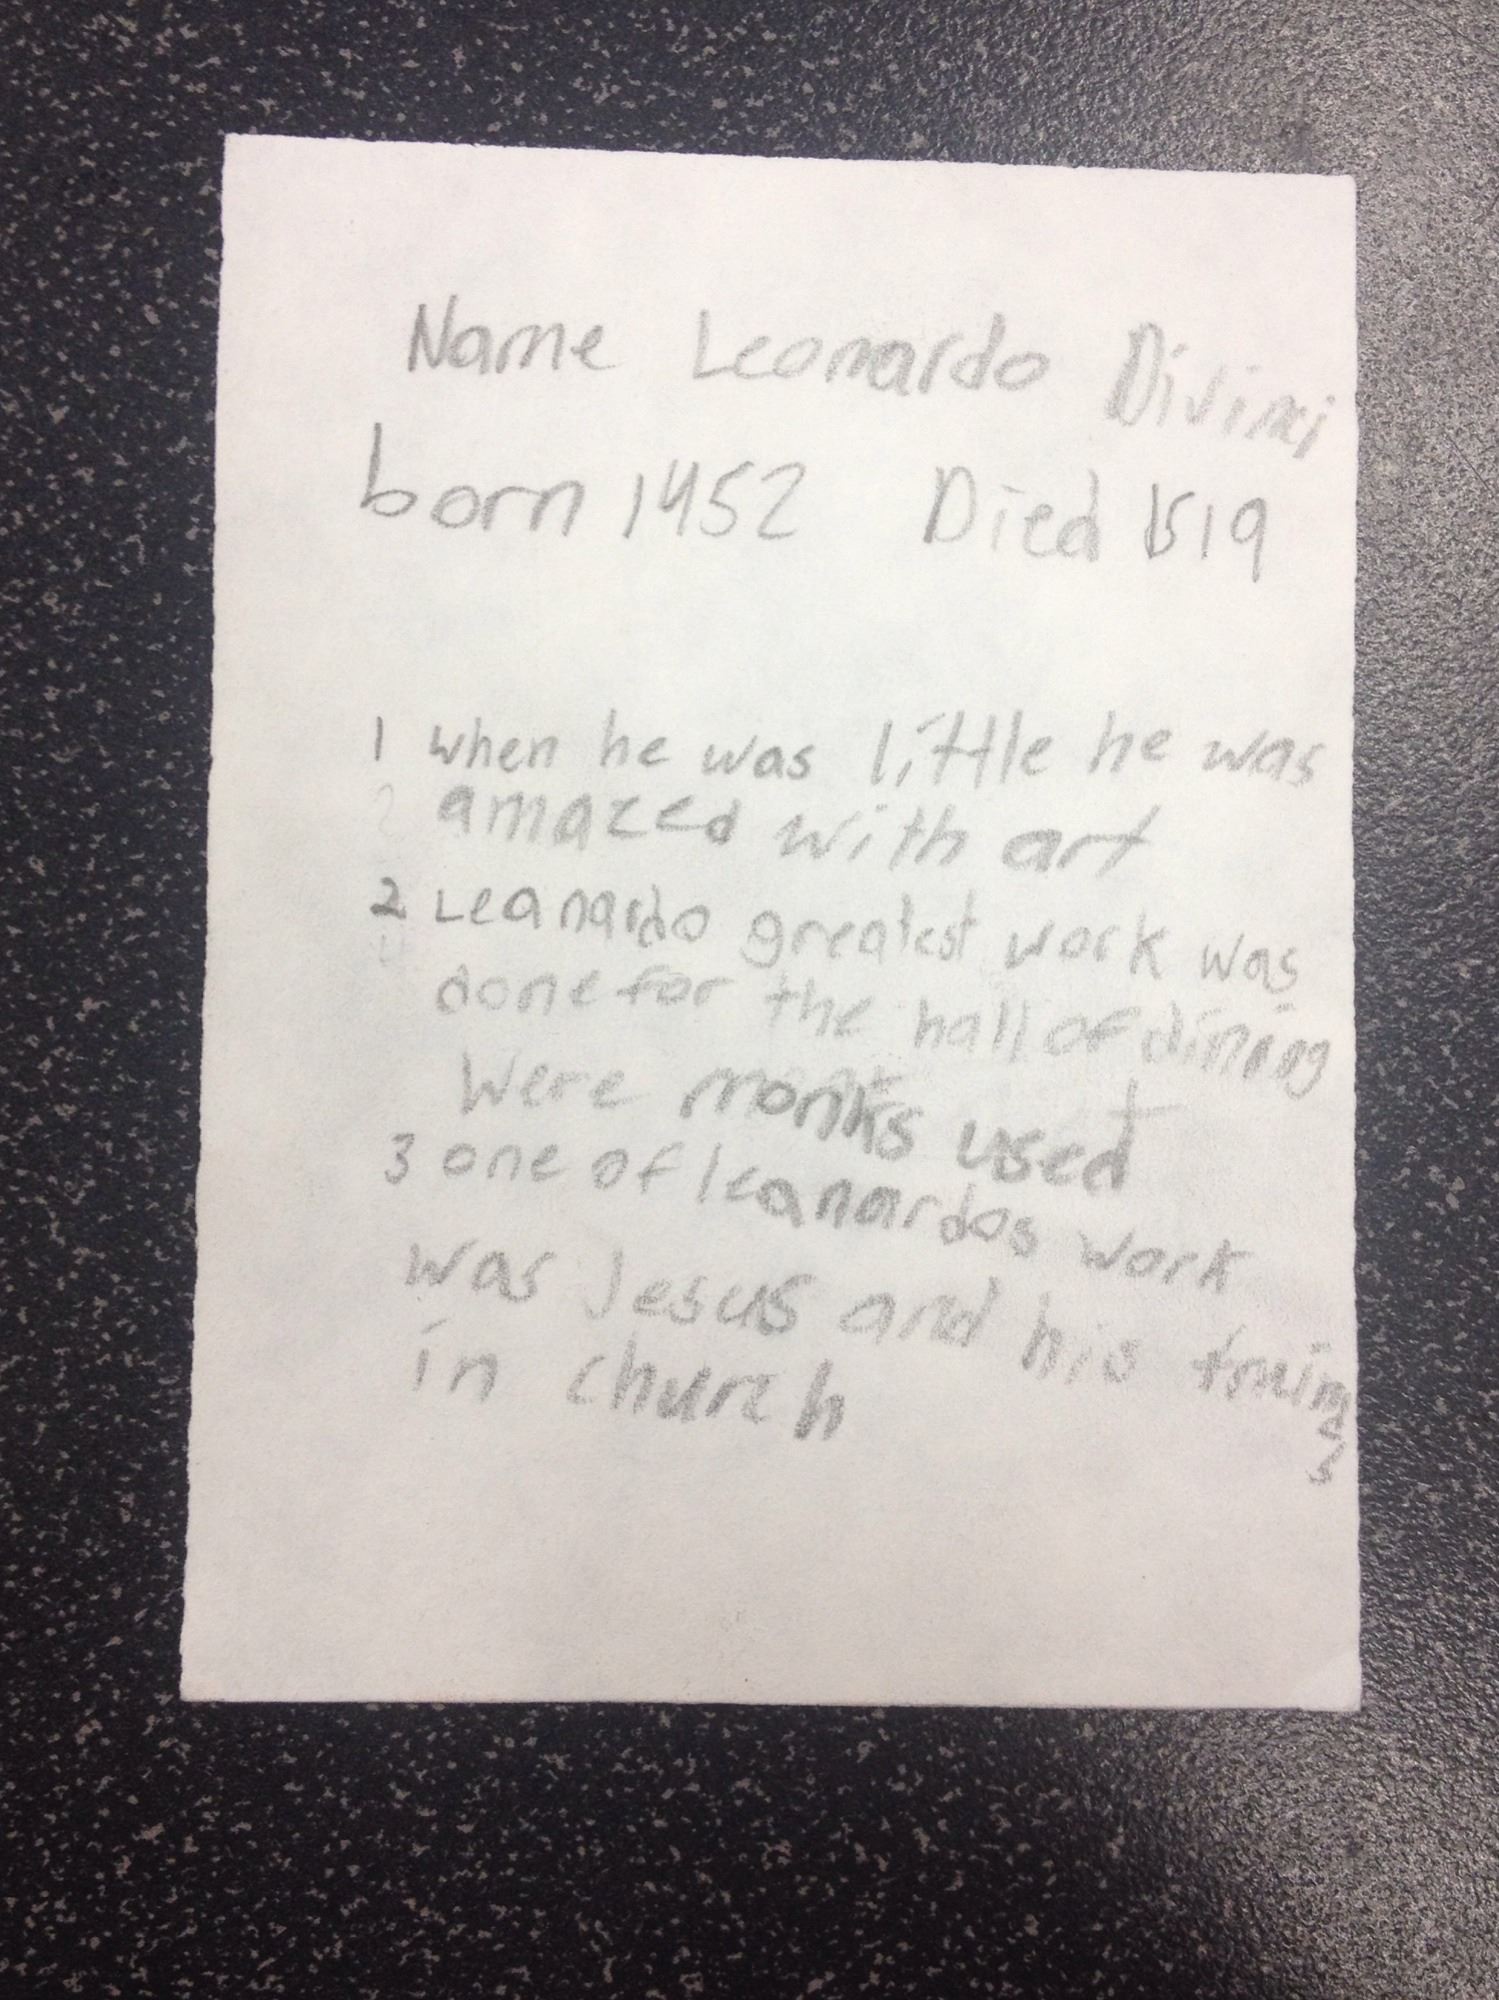 Name Leonardo Divinci
born 1452 Died 1519
1 when he was little he was
amazed with art
2 Leanardo greatest work was
done for the hall of dining
were monks used
3 one of leanardos work
was Jesus and his
in church